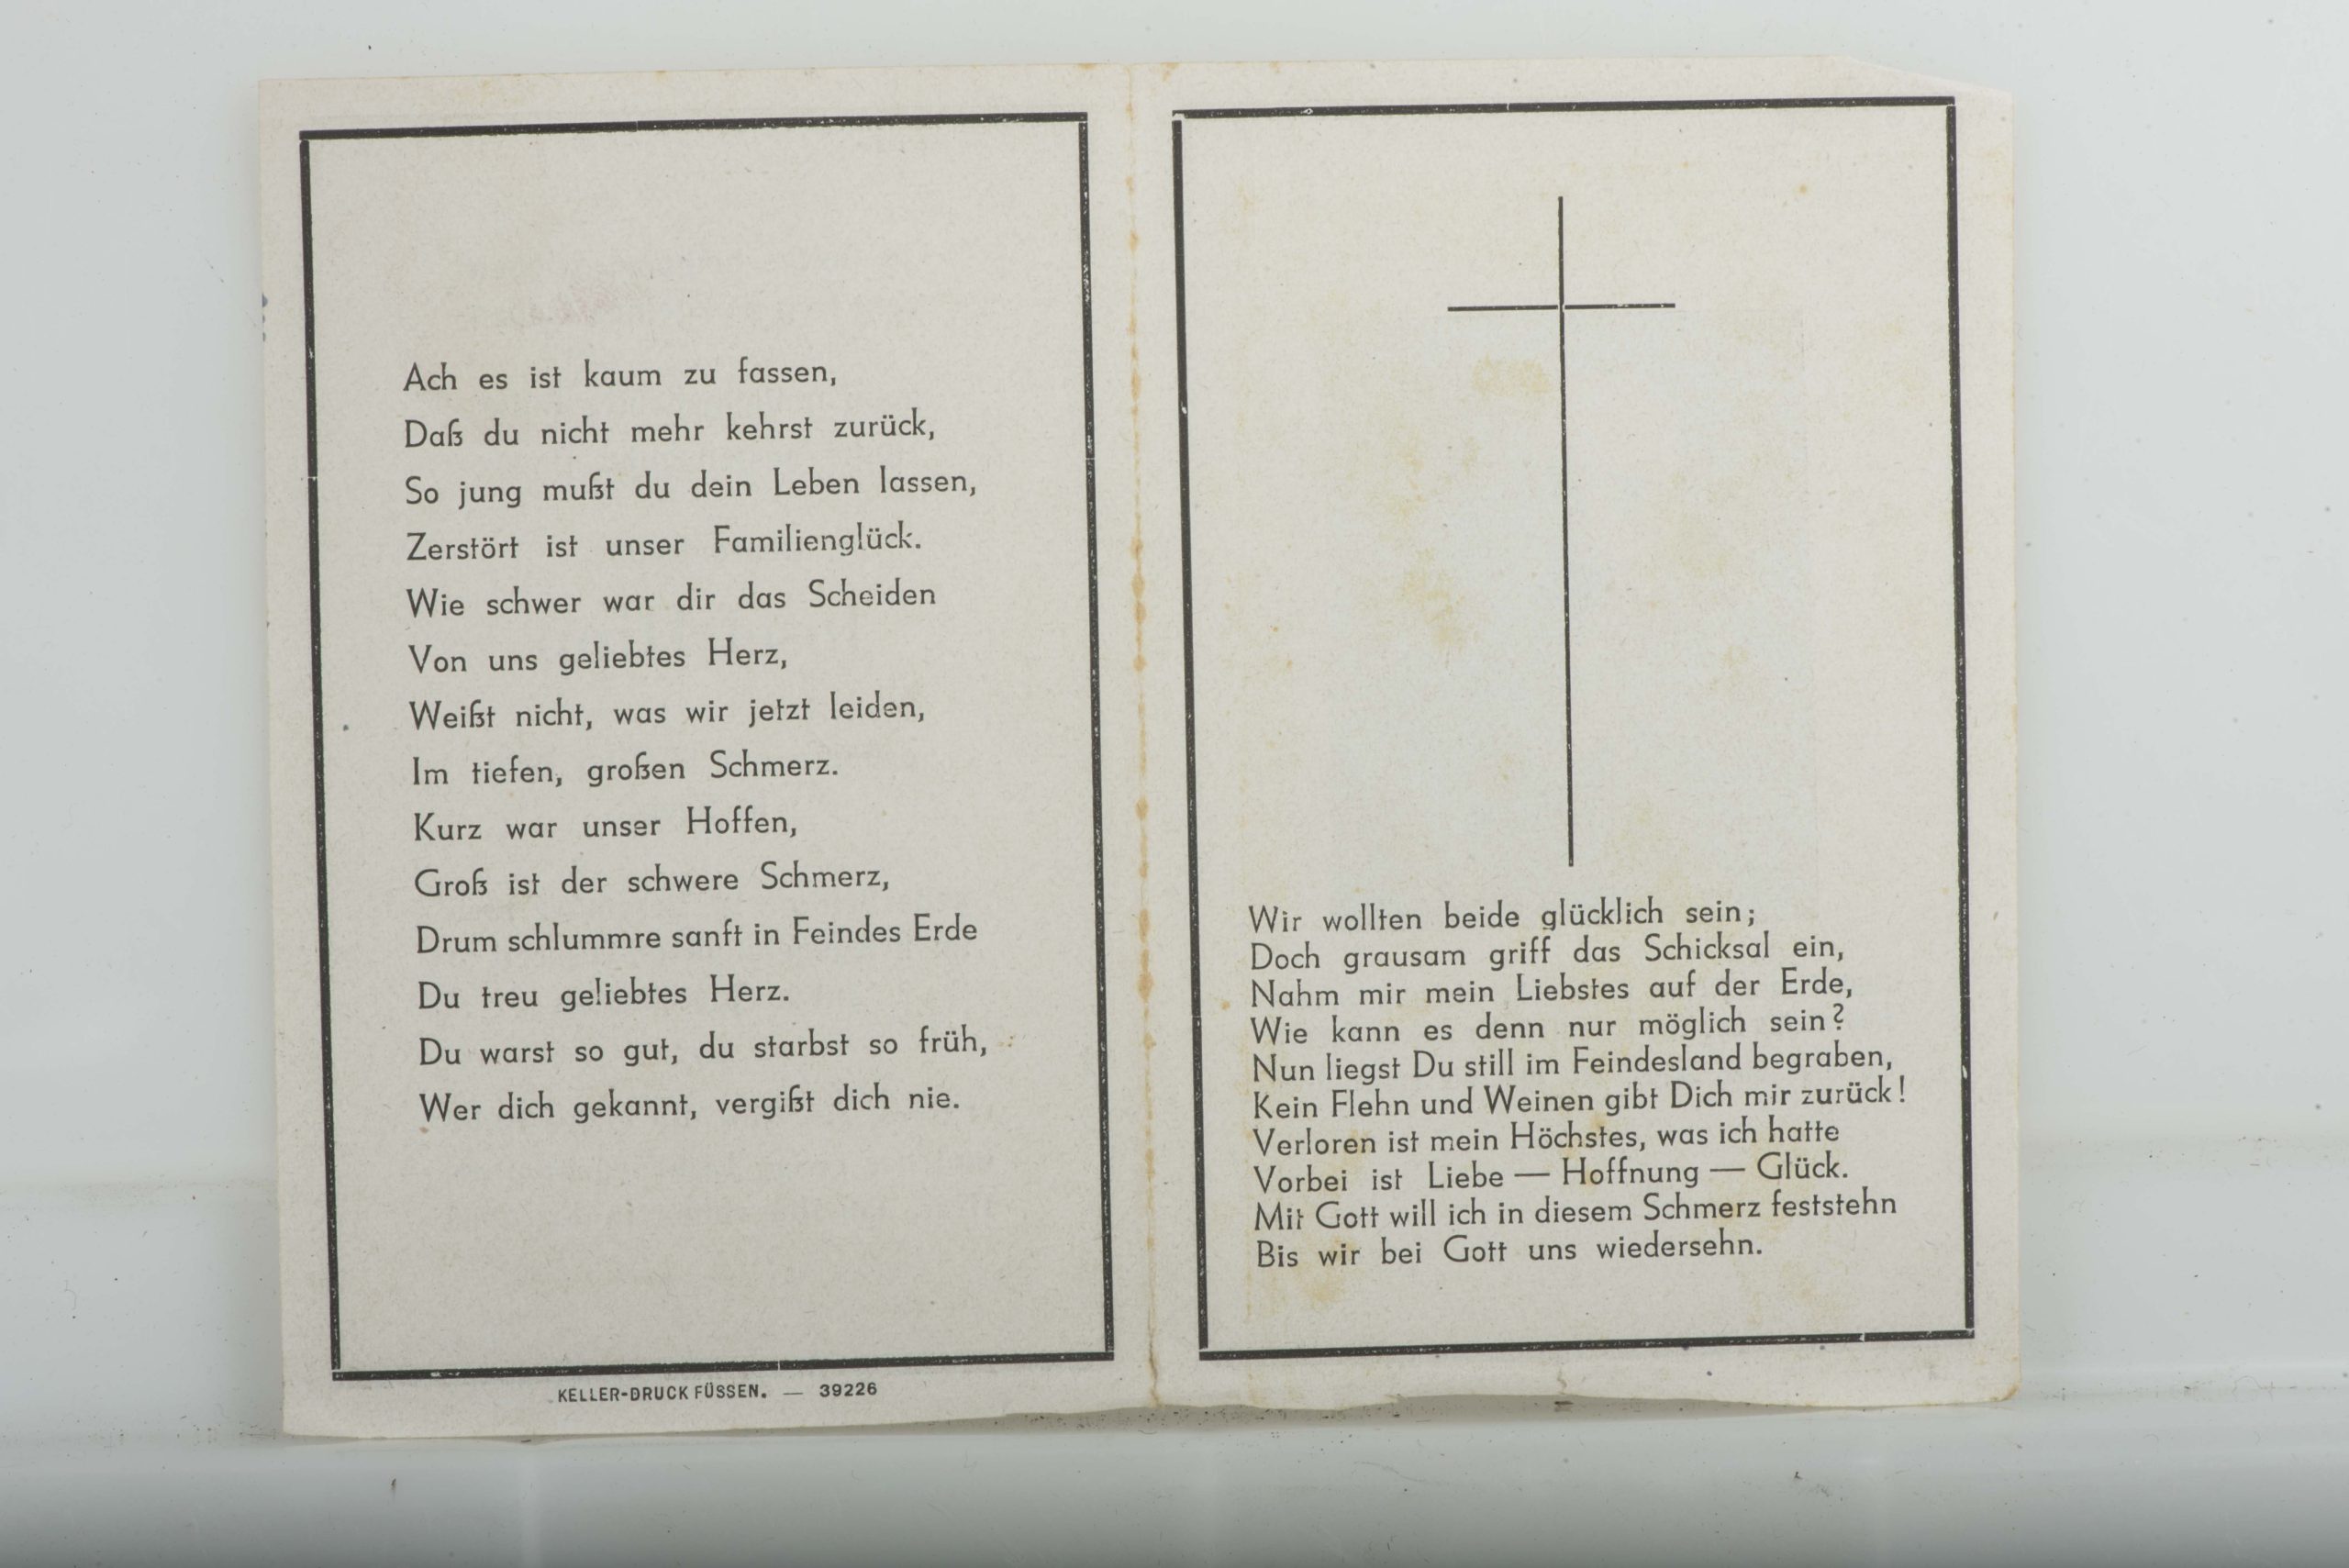 Ach es ist kaum zu fassen,
Daß du nicht mehr kehrst zurück,
So jung mußt du dein Leben lassen,
Zerstört ist unser Familienglück.
Wie schwer war dir das Scheiden
Von uns geliebtes Herz,
Weißt nicht, was wir jetzt leiden,
Im tiefen, großen Schmerz.
Kurz war unser Hoffen,
Groß ist der schwere Schmerz,
Drum schlummre sanft in Feindes Erde
Du treu geliebtes Herz.
Du warst so gut, du starbst so früh,
Wer dich gekannt, vergißt dich nie.
KELLER-DRUCK FÜSSEN. — 39226
Wir wollten beide glücklich sein;
Doch grausam griff das Schicksal ein,
Nahm mir mein Liebstes auf der Erde,
Wie kann es denn nur möglich sein?
Nun liegst Du still im Feindesland begraben,
Kein Flehn und Weinen gibt Dich mir zurück!
Verloren ist mein Höchstes, was ich hatte
Vorbei ist Liebe — Hoffnung — Glück.
Mit Gott will ich in diesem Schmerz feststehn
Bis wir bei Gott uns wiedersehn.